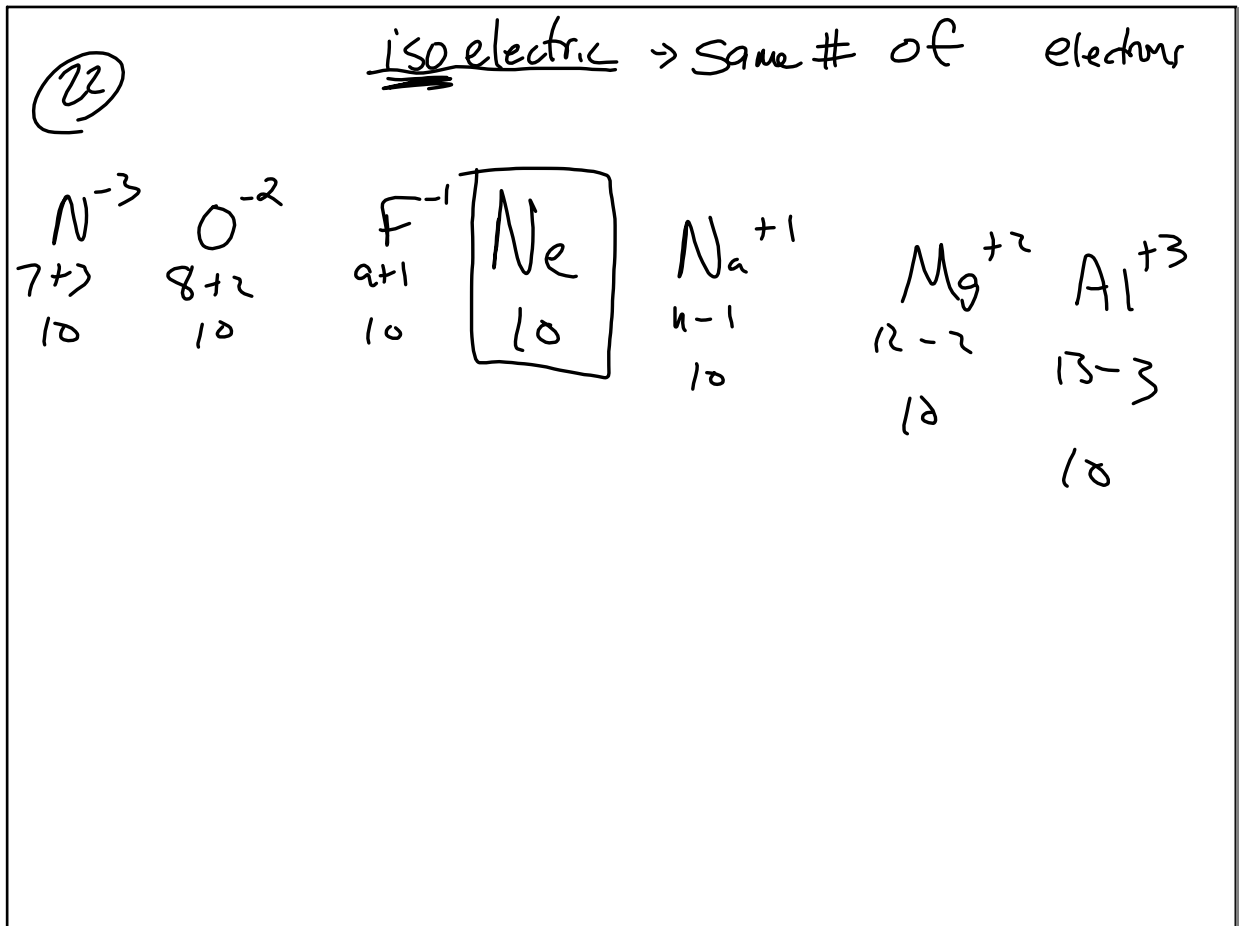 iso electric → same # of electrons
22
N⁻³ O⁻² F⁻¹ Ne Na⁺¹ Mg⁺² Al⁺³
7+3 8+2 9+1 10 11-1 12-2 13-3
10 10 10 10 10 10